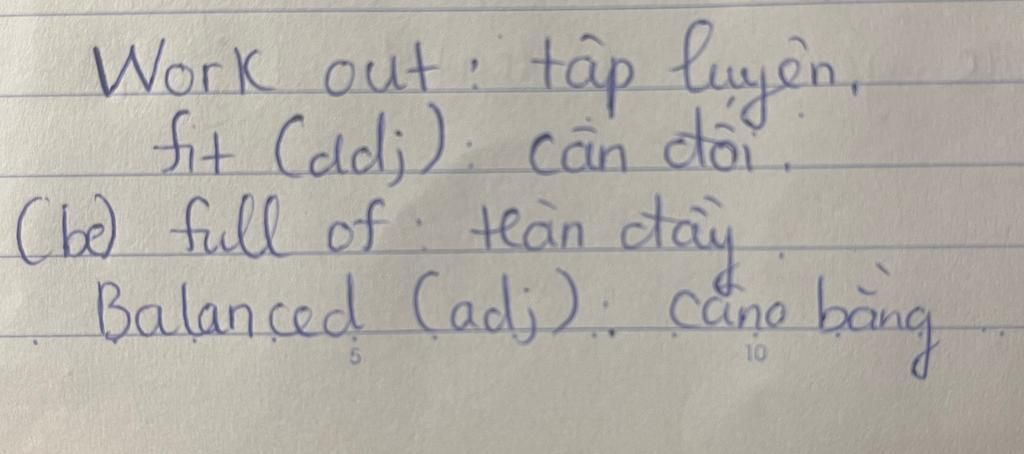 Work out: tập luyện.
fit (adj): cân đối.
(be) full of: tràn đầy
Balanced (adj): câno bằng
5 10